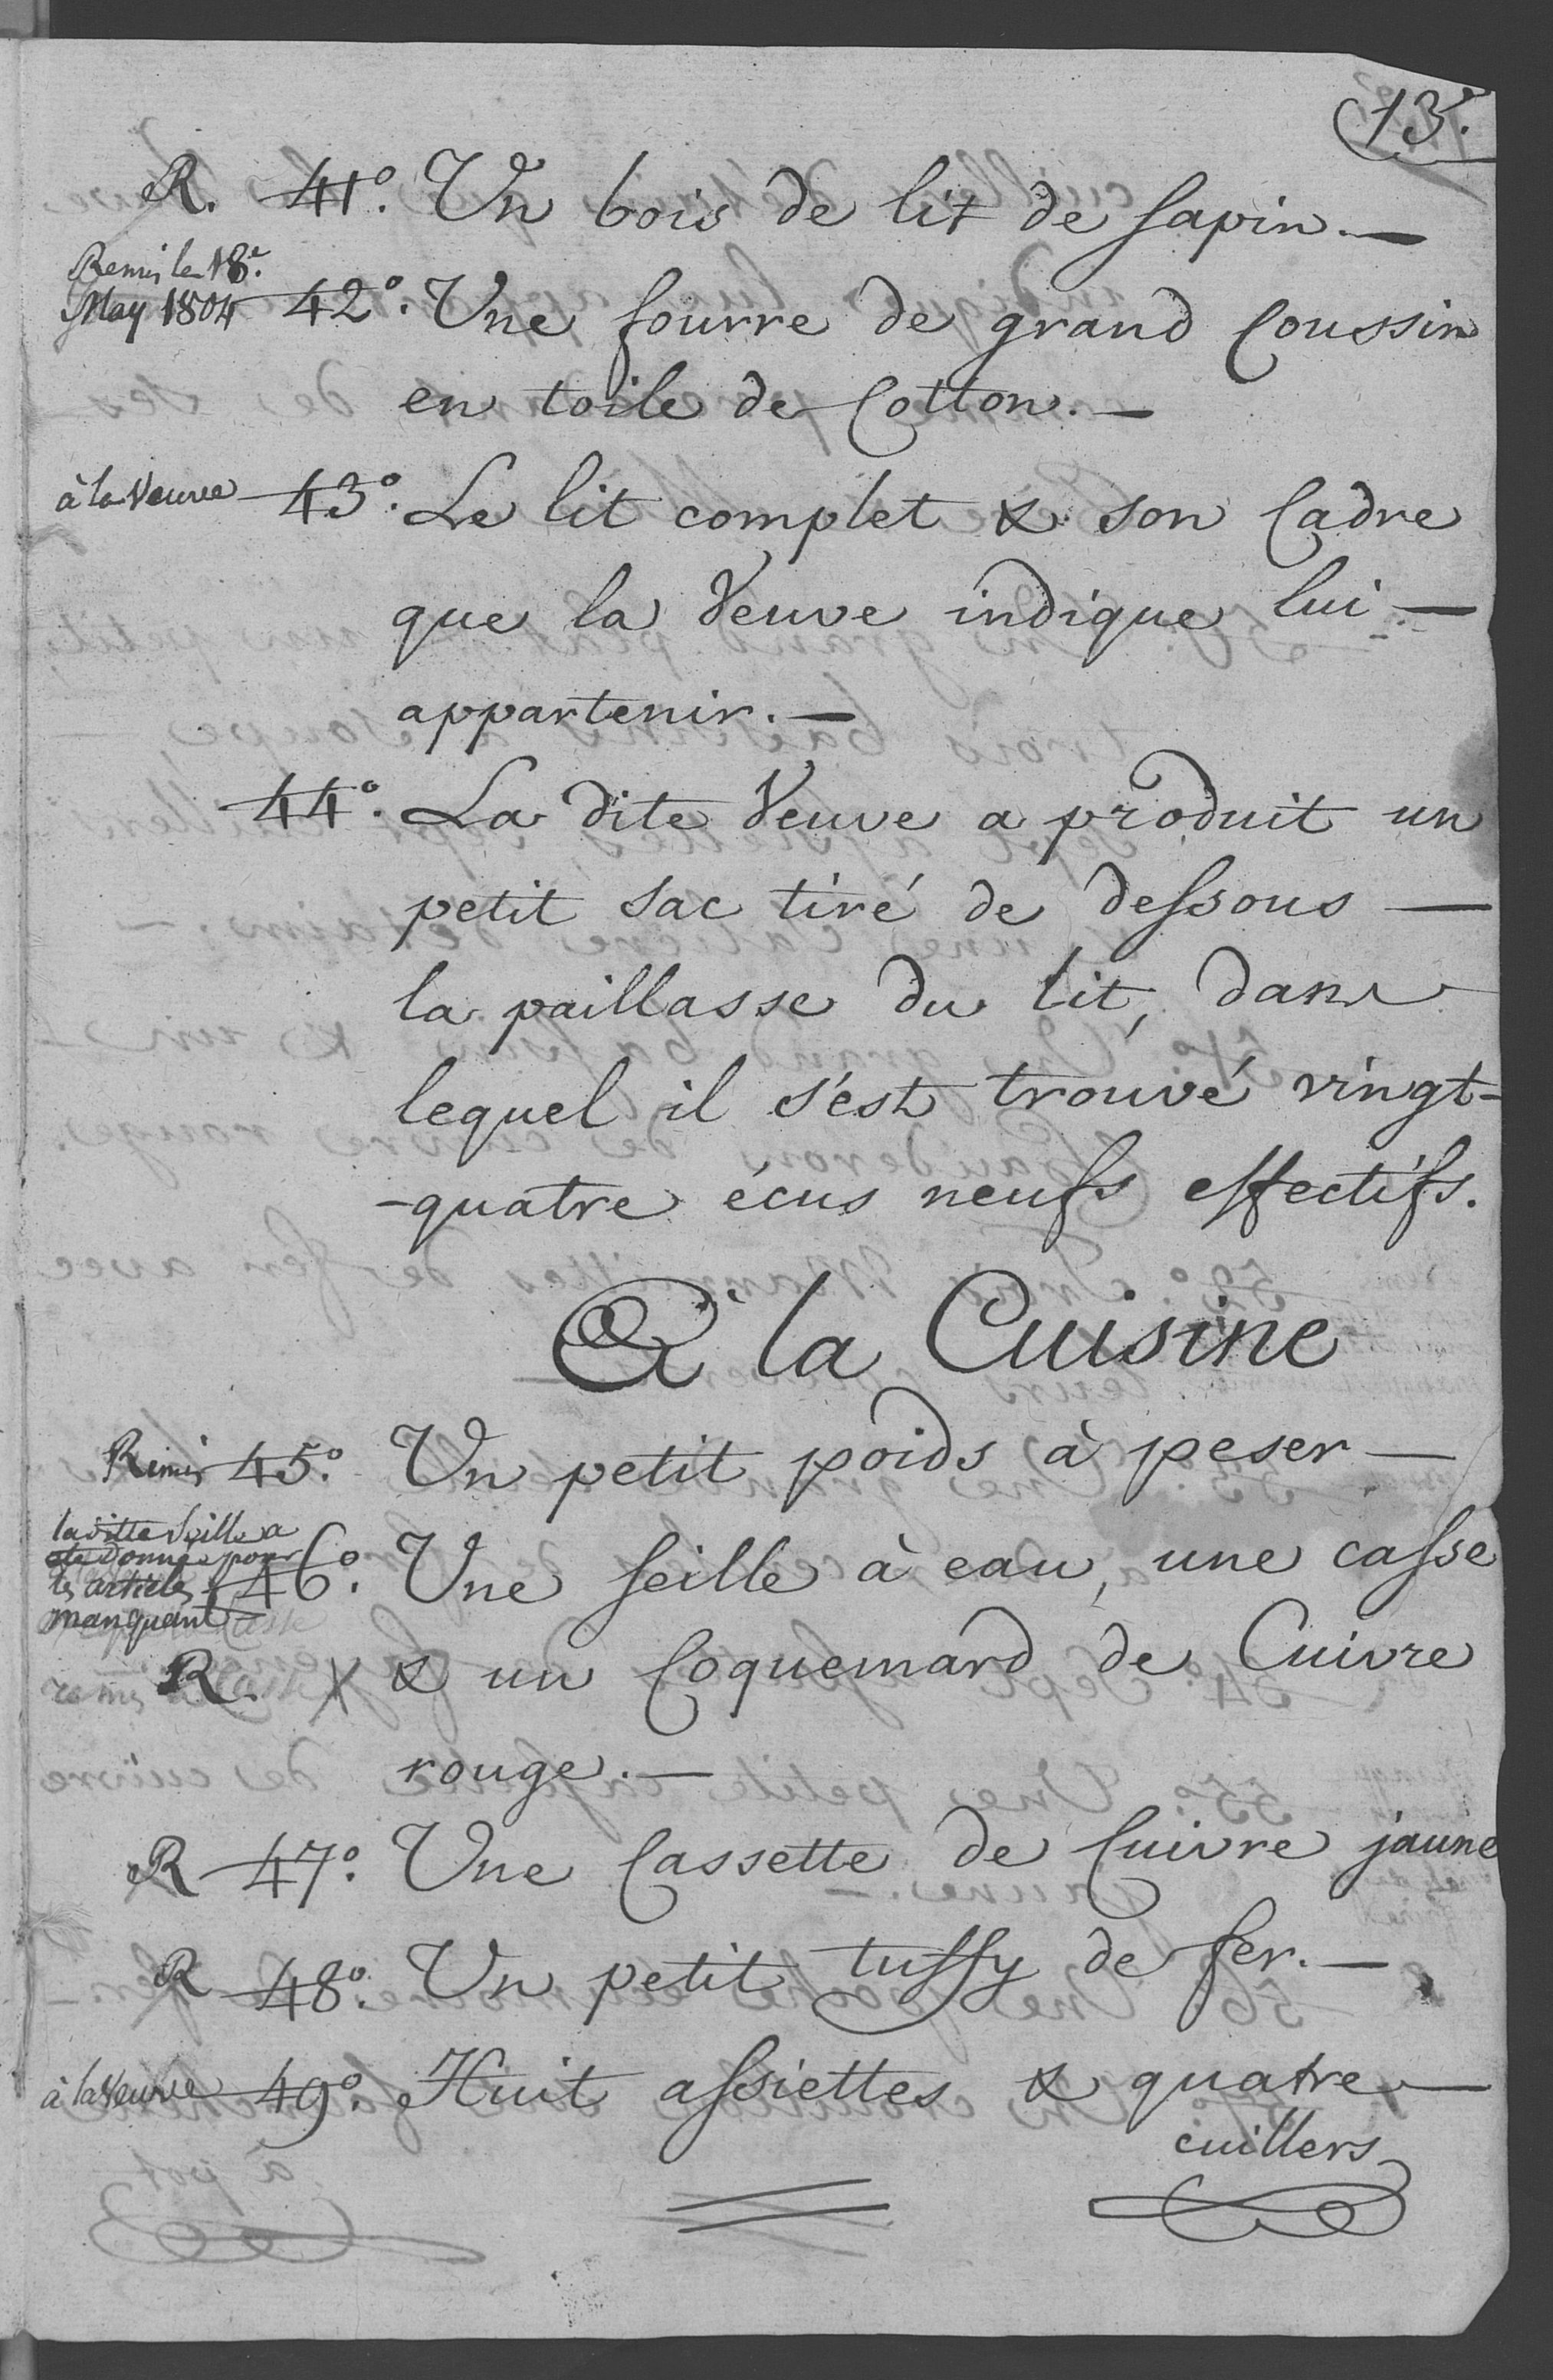 13.
R. 41°. Un bois de lit de sapin. —
Remis le 18e.
May 1804 42°. Une fourre de grand Coussin
en toile de Cotton. —
à la Veuve 43°. Le lit complet & son Cadre
que la Veuve indique lui —
appartenir. —
44°. La dite Veuve a produit un
petit sac tiré de dessous —
la paillasse du lit, dans
lequel il s'est trouvé vingt-
-quatre écus neufs effectifs.
A la Cuisine
Remis 45°. Un petit poids à peser —
la ditte Seille a
ete donnée pour
les articles 46°. Une seille à eau, une casse
manquant
R. X & un Coquemard de Cuivre
remis la Casse
rouge. —
R 47°. Une Cassette de Cuivre jaune
R 48°. Un petit tuffy de fer. —
à la Veuve 49°. Huit assiettes & quatre —
cuillers